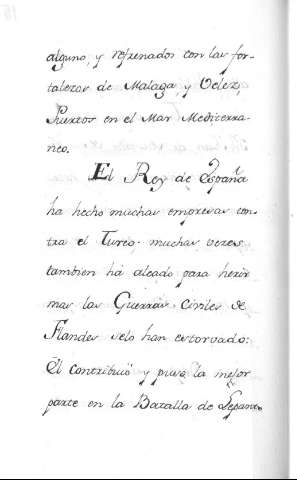 alguno, y refrenados con las for-
talezas de Malaga, y Velez,
Puertos en el Mar Mediterra-
neo.
El Rey de España
ha hecho muchas empresas con-
tra el Turco. muchas veces
tambien ha alçado para herir
mas las Guerras civiles de
Flandes selo han estorvado:
El contribuiò y puso la mejor
parte en la Batalla de Lepanto